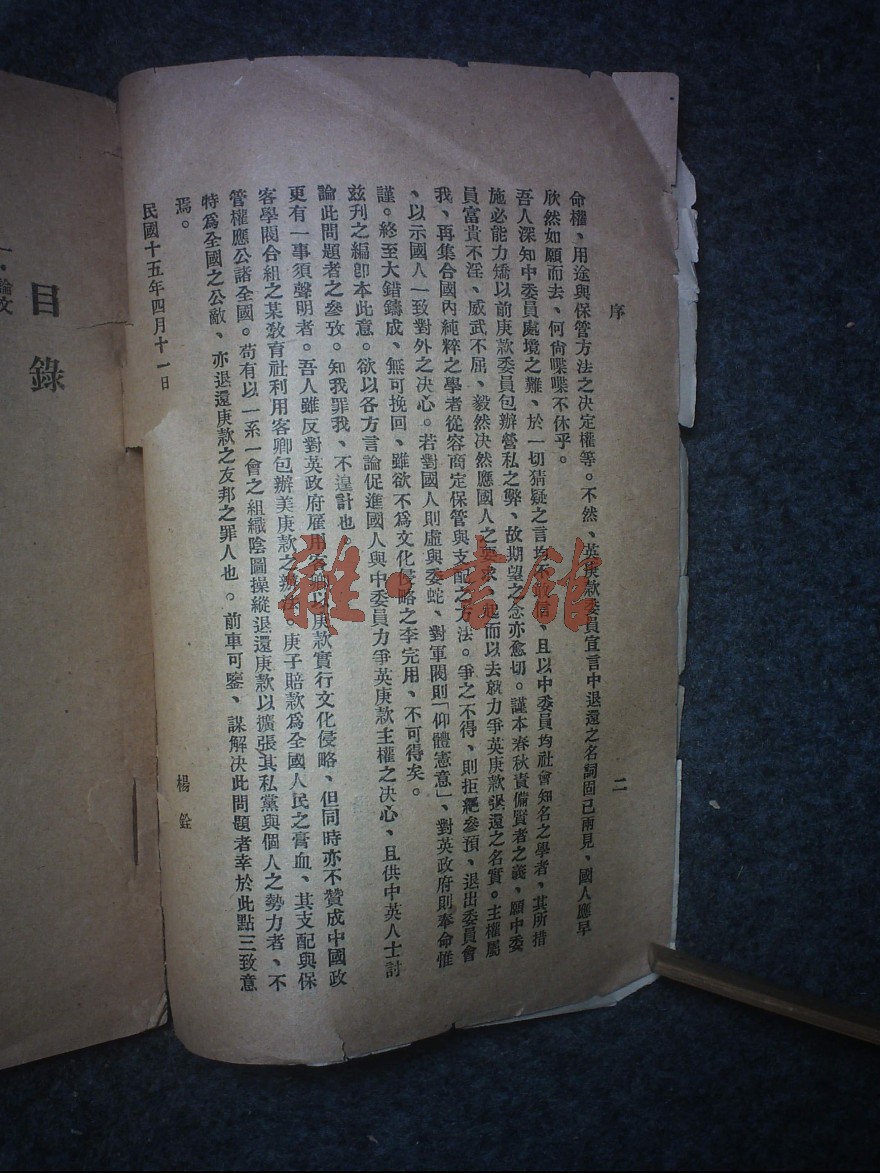 序
二
命權、用途與保管方法之決定權等。不然、英庚款委員宣言中退還之名詞固已兩見、國人應早
欣然如願而去、何尙喋喋不休乎。
吾人深知中委員處境之難、於一切猜疑之言均不、且以中委員均社會知名之學者、其所措
施必能力矯以前庚款委員包辦營私之弊、故期望之念亦愈切。謹本春秋責備賢者之義、願中委
員富貴不淫、威武不屈、毅然決然應國人之要求、起而以去就力爭英庚款退還之名實。主權屬
我、再集合國內純粹之學者從容商定保管與支配之方法。爭之不得、則拒絕參預、退出委員會
、以示國人一致對外之決心。若對國人則虛與委蛇、對軍閥則「仰體憲意」、對英政府則奉命惟
謹。終至大錯鑄成、無可挽回、雖欲不爲文化侵略之李完用、不可得矣。
茲刊之編卽本此意。欲以各方言論促進國人與中委員力爭英庚款主權之決心、且供中英人士討
論此問題者之參攷。知我罪我、不遑計也
更有一事須聲明者。吾人雖反對英政府雇用客卿以庚款實行文化侵略、但同時亦不贊成中國政
客學閥合組之某敎育社利用客卿包辦美庚款之辦法。庚子賠款爲全國人民之膏血、其支配與保
管權應公諸全國。苟有以一系一會之組織陰圖操縱退還庚款以擴張其私黨與個人之勢力者、不
特爲全國之公敵、亦退還庚款之友邦之罪人也。前車可鑒、謀解決此問題者幸於此點三致意
焉。
民國十五年四月十一日
楊銓
目錄
一・論文
雜・書館